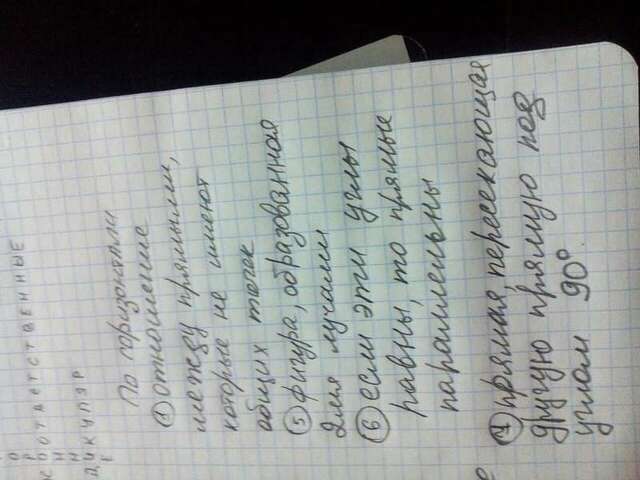 ООТВЕТСТВЕННЫЕ
ДИКУЛЯР
По горизонтали
① отношение
между прямыми,
которые не имеют
общих точек
⑤ фигура, образованная
2мя лучами
⑥ если эти углы
равны, то прямые
параллельны
⑦ прямая, пересекающая
другую прямую под
углом 90°